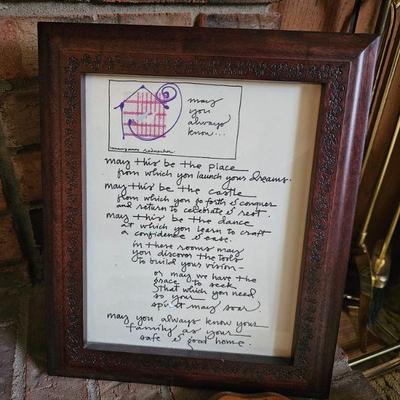 may
you
always
know...
maryanne radmacher
may this be the place
from which you launch your dreams.
may this be the castle
from which you go forth & conquer
and return to celebrate & rest.
may this be the dance
at which you learn to craft
a confidence & ease.
in these rooms may
you discover the tools
to build your vision—
or may we have the
grace to seek
that which you need
so your
spirit may soar.
may you always know your
family as your
safe & good home.